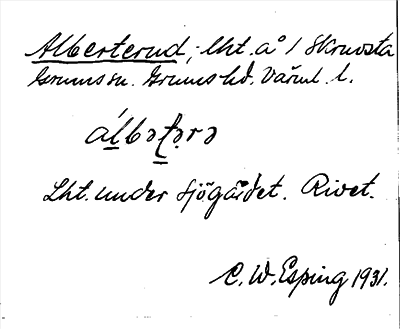 Alberterud, lht. å 1 Skruvsta
Grums sn. Grums hd. Värml. l.
álbəţərə
Lht. under Sjögärdet. Rivet.
C. W. Esping 1931.